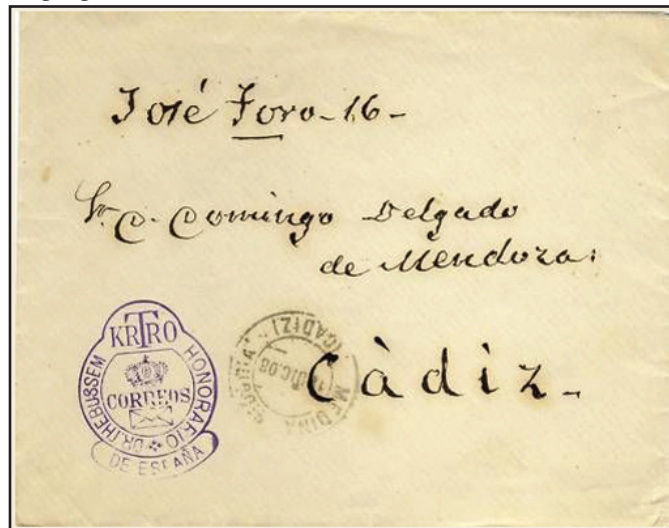 José Toro - 16 -
Sr. D. Domingo Delgado
de Mendoza:
Càdiz -
KRTRO
CORREOS
DR. THEBUSSEM HONORARIO
DE ESPAÑA
MEDINA SIDONIA
(CADIZ)
DIC. 08